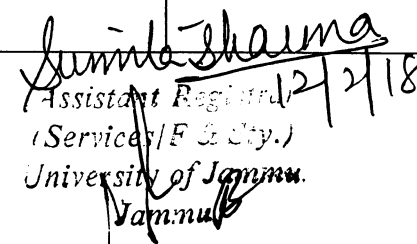 Sunita Sharma
12/2/18
(Assistant Registrar
(Services/F & Sty.)
University of Jammu.
Jammu